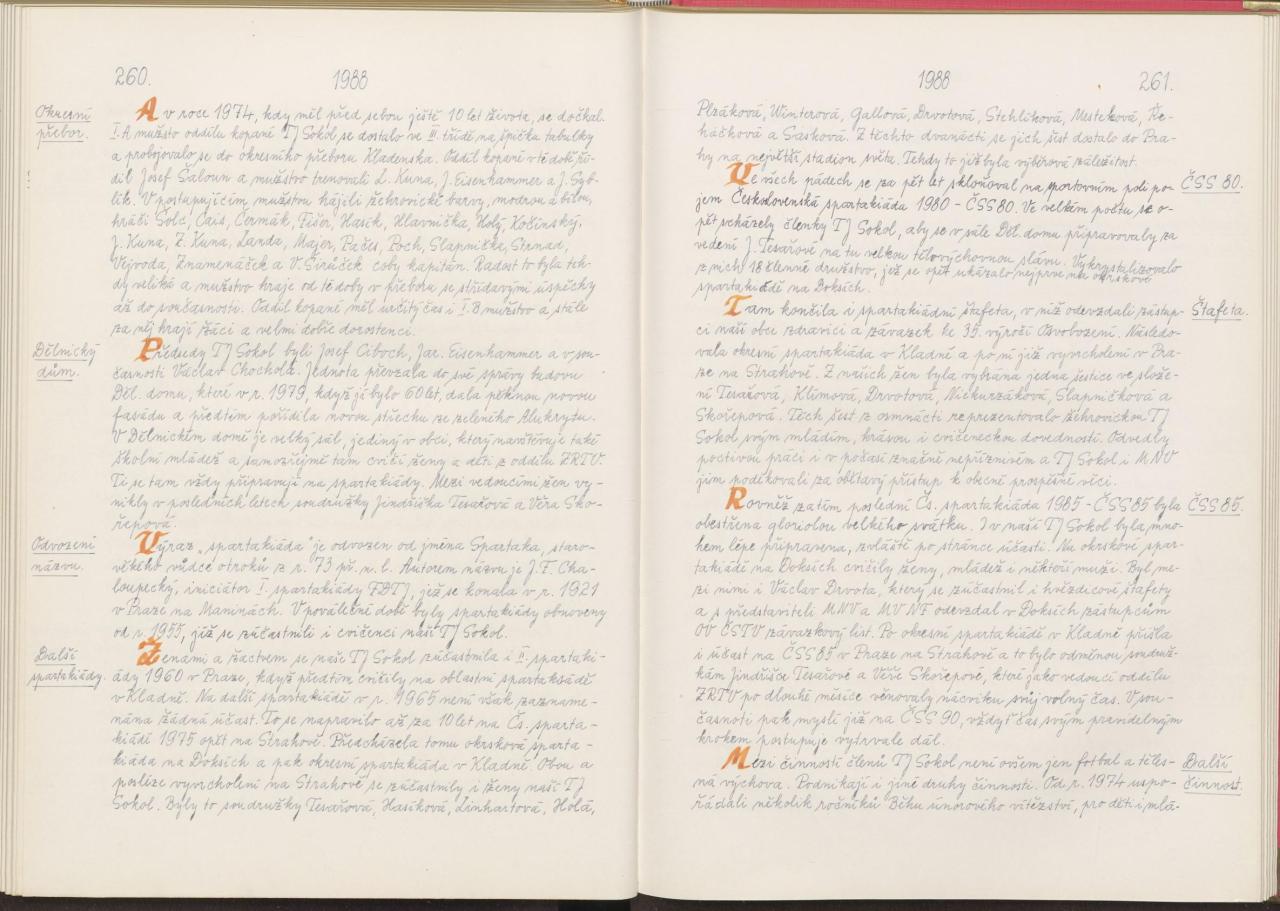 260.
1988
Okresní
přebor.
A v roce 1974, kdy měl před sebou ještě 10 let života, se dočkal.
I. A mužsto oddílu kopané TJ Sokol se dostalo ve III. třídě na špičku tabulky
a probojovalo se do okresního přeboru Kladenska. Oddíl kopané v té době ří-
dil Josef Šaloun a mužstvo trenovali L. Kuna, J. Eisenhammer a J. Syb-
lík. V postupujícím mužstvu hájili žehrovické barvy, modrou a bílou,
hráči Šolc, Čais, Čermák, Fišer, Hasík, Hlavnička, Holý, Kočinský,
J. Kuna, Z. Kuna, Landa, Majer, Pačes, Poch, Slapnička, Strnad,
Vejvoda, Znamenáček a V. Širůček coby kapitán. Radost to byla teh-
dy veliká a mužstvo hraje od té doby v přeboru se střídavými úspěchy
až do současnosti. Oddíl kopané měl určitý čas i I. B mužstvo a stále
za něj hrají žáci a velmi dobře dorostenci.
Dělnický
dům.
Předsedy TJ Sokol byli Josef Ciboch, Jar. Eisenhammer a v sou-
časnosti Václav Chochola. Jednota převzala do své správy budovu
Děl. domu, které v r. 1979, když jí bylo 60 let, dala pěknou novou
fasádu a předtím pořídila novou střechu ze zeleného Alukrytu.
V Dělnickém domě je velký sál, jediný v obci, který navštěvuje také
školní mládež a samozřejmě tam cvičí ženy a děti z oddílu ZRTV.
Ti se tam vždy připravují na spartakiády. Mezi vedoucími žen vy-
nikly v posledních letech soudružky Jindřiška Tesařová a Věra Sko-
řepová.
Odvození
názvu.
Výraz „spartakiáda" je odvozen od jména Spartaka, staro-
věkého vůdce otroků z r. 73 př. n. l. Autorem názvu je J. F. Cha-
loupecký, iniciátor I. spartakiády FDTJ, jež se konala v r. 1921
v Praze na Maninách. V poválečné době byly spartakiády obnoveny
od r. 1955, jíž se zúčastnili i cvičenci naší TJ Sokol.
Další
spartakiády.
Ženami a žactvem se naše TJ Sokol zúčastnila i II. spartaki-
ády 1960 v Praze, když předtím cvičily na oblastní spartakiádě
v Kladně. Na další spartakiádě v r. 1965 není však zazname-
nána žádná účast. To se napravilo až za 10 let na Čs. sparta-
kiádě 1975 opět na Strahově. Předcházela tomu okrsková sparta-
kiáda na Doksích a pak okresní spartakiáda v Kladně. Obou a
posléze vyvrcholení na Strahově se zúčastnily i ženy naší TJ
Sokol. Byly to soudružky Tesařová, Hasíková, Linhartová, Holá,
1988
261.
Plzáková, Winterová, Gallová, Drvotová, Stehlíková, Mesteková, Ře-
háčková a Sasková. Z těchto dvanácti se jich šest dostalo do Pra-
hy na největší stadion světa. Tehdy to již byla výběrová záležitost.
Ve všech pádech se za pět let skloňoval na sportovním poli po-
jem Československá spartakiáda 1980 - ČSS 80. Ve velkém počtu se o-
pět scházely členky TJ Sokol, aby se v sále Děl. domu připravovaly za
vedení J. Tesařové na tu velkou tělovýchovnou slávu. Vykrystalizovalo
z nich 18 členné družstvo, jež se opět ukázalo nejprve na okrskové
spartakiádě na Doksích.
ČSS 80.
Tam končila i spartakiádní štafeta, v níž odevzdali zástup-
ci naší obce zdravici a závazek ke 35. výročí Osvobození. Následo-
vala okresní spartakiáda v Kladně a po ní již vyvrcholení v Pra-
ze na Strahově. Z našich žen byla vybrána jedna šestice ve slože-
ní Tesařová, Klímová, Drvotová, Nickurzáková, Slapničková a
Skořepová. Těch šest z osmnácti reprezentovalo žehrovickou TJ
Sokol svým mládím, krásou i cvičeneckou dovedností. Odvedly
poctivou práci i v počasí značně nepříznivém a TJ Sokol i MNV
jim poděkovali za obětavý přístup k obecně prospěšné věci.
Štafeta.
Rovněž zatím poslední Čs. spartakiáda 1985 - ČSS 85 byla
obestřena gloriolou velkého svátku. I v naší TJ Sokol byla mno-
hem lépe připravena, zvláště po stránce účasti. Na okrskové spar-
takiádě na Doksích cvičily ženy, mládež i někteří muži. Byl me-
zi nimi i Václav Drvota, který se zúčastnil i hvězdicové štafety
a s představiteli MNV a MV NF odevzdal v Doksích zástupcům
OV ČSTV závazkový list. Po okresní spartakiádě v Kladně přišla
i účast na ČSS 85 v Praze na Strahově a to bylo odměnou soudruž-
kám Jindřišce Tesařové a Věře Skořepové, které jako vedoucí oddílu
ZRTV po dlouhé měsíce věnovaly nácviku svůj volný čas. V sou-
časnosti pak myslí již na ČSS 90, vždyť čas svým pravidelným
krokem postupuje vytrvale dál.
ČSS 85.
Mezi činností členů TJ Sokol není ovšem jen fotbal a těles-
ná výchova. Podnikají i jiné druhy činnosti. Od r. 1974 uspo-
řádali několik ročníků Běhu únorového vítězství, pro děti i mlá-
Další
činnost.